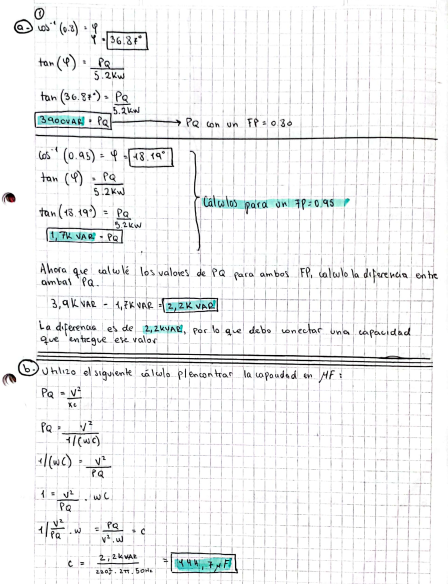 ①
a. cos⁻¹ (0.8) = φ
φ = 36.87°
tan (φ) = PQ / 5.2kW
tan (36.87°) = PQ / 5.2kW
3900VAR = PQ → PQ con un FP = 0.80
cos⁻¹ (0.95) = φ = 18.19°
tan (φ) = PQ / 5.2kW
Cálculos para un FP=0.95
tan (18.19°) = PQ / 5.2kW
1,7K VAR = PQ
Ahora que calculé los valores de PQ para ambos FP, calculo la diferencia entre
ambas PQ.
3,9K VAR - 1,7K VAR = 2,2K VAR
La diferencia es de 2,2KVAR, por lo que debo conectar una capacidad
que entregue ese valor
b. Utilizo el siguiente cálculo p/encontrar la capacidad en μF:
PQ = V² / Xc
PQ = V² / 1/(ωC)
1/(ωC) = V² / PQ
1 = V² / PQ . ωC
1/ V²/PQ . ω = PQ / V².ω = C
C = 2,2KVAR / 220².2π.50Hz = 144,7μF